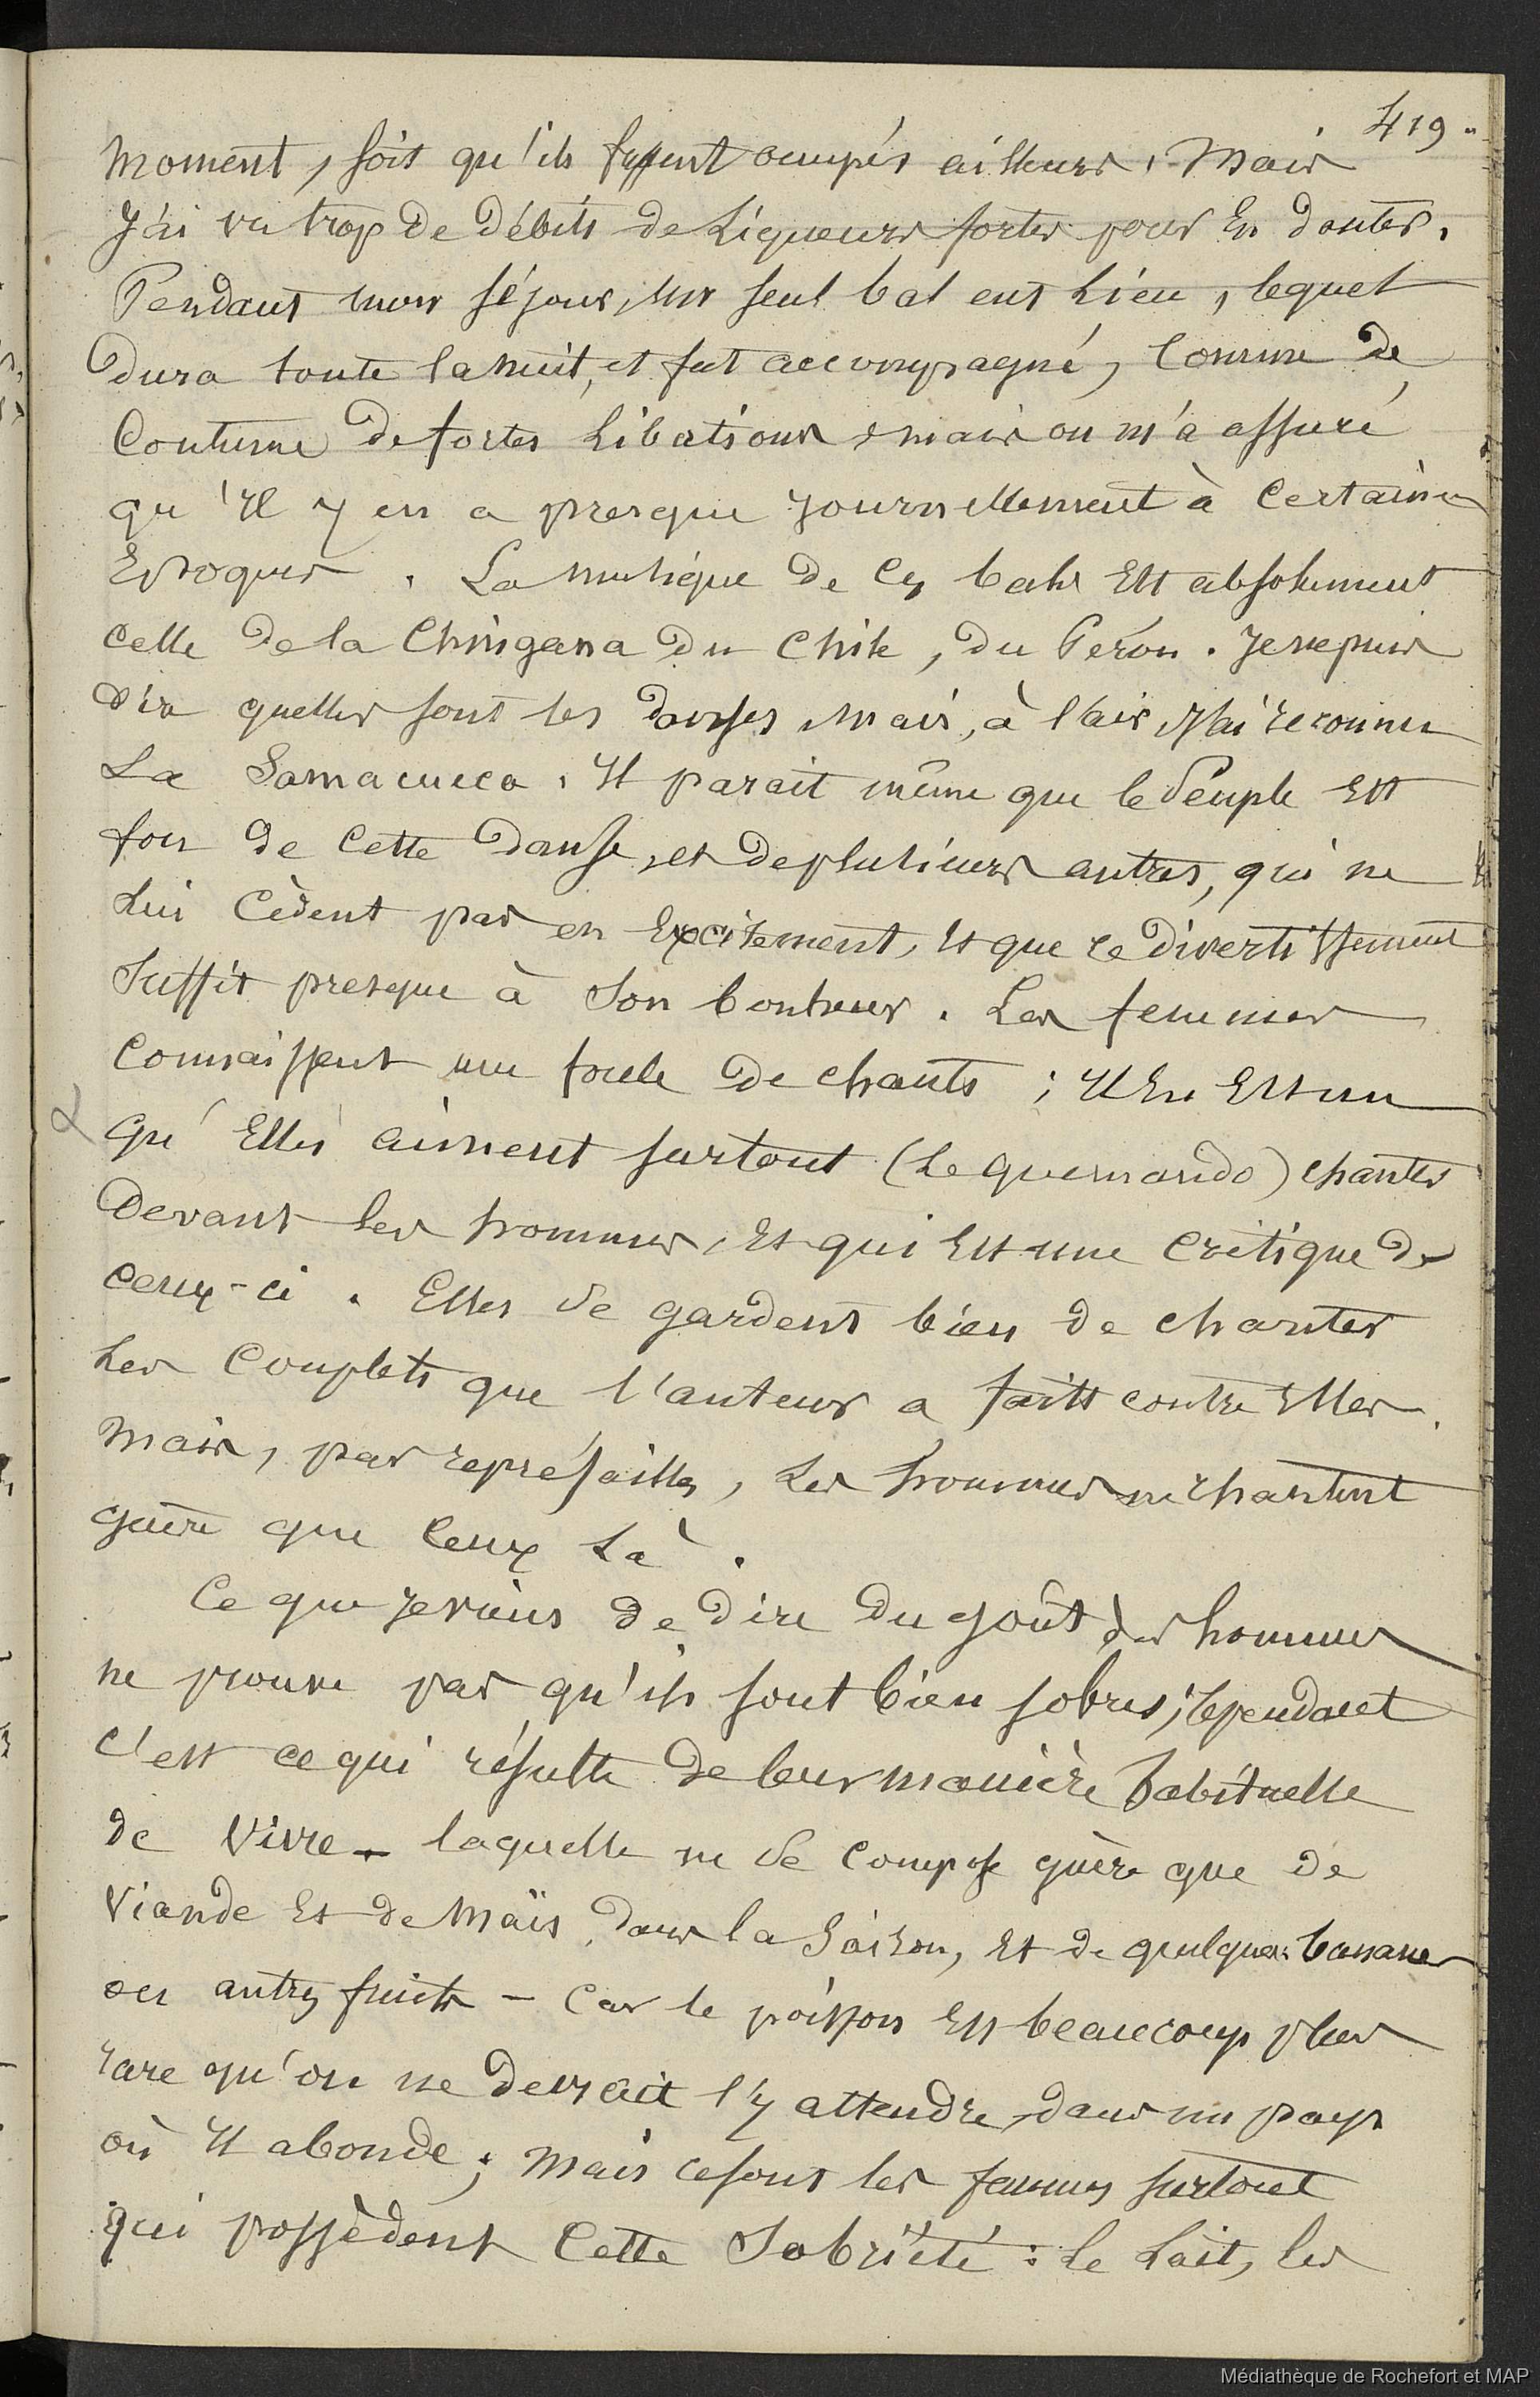 419.
moment, soit qu'ils fussent occupés ailleurs. Mais
J'ai vu trop de débits de Liqueurs fortes pour En douter.
Pendant mon séjour, un seul bal eut Lieu, lequel
dura toute la nuit, et fut accompagné, Comme de
Coutume de fortes Libations, mais on m'a assuré
qu'Il y en a presque Journellement à Certaines
Epoques. La musique de Ces bals Est absolument
celle de la Chingana du Chile, du Pérou. Je ne puis
dire quelles sont les danses, mais, à l'air, J'ai reconnu
La Samacueca. Il parait même que le Peuple Est
fou de Cette danse, et de plusieurs autres, qui ne
Lui Cèdent pas en Excitement, Et que ce divertissement
Suffit presque à Son bonheur. Les femmes
Connaissent une foule de chants ; Il En Est un
Qu'Elles aiment surtout (Le quemando) chanter
Devant Les hommes, Et qui Est une Critique de
Ceux-ci. Elles Se gardent bien de chanter
Les Couplets que l'auteur a faits contre Elles.
Mais, par représailles, Les hommes ne chantent
guère que Ceux Là.
Ce que Je viens de dire du goût des hommes
ne prouve pas qu'ils sont bien sobres ; Cependant
C'est ce qui résulte de leur manière habituelle
de Vivre - laquelle ne Se Compose guère que de
Viande Et de Maïs, dans la Saison, Et de quelques bananes
ou autres fruits - Car le poisson Est beaucoup plus
rare qu'on ne devrait s'y attendre, dans un pays
où Il abonde ; Mais ce sont les femmes surtout
qui possèdent Cette Sobriété : Le Lait, les
Médiathèque de Rochefort et MAP